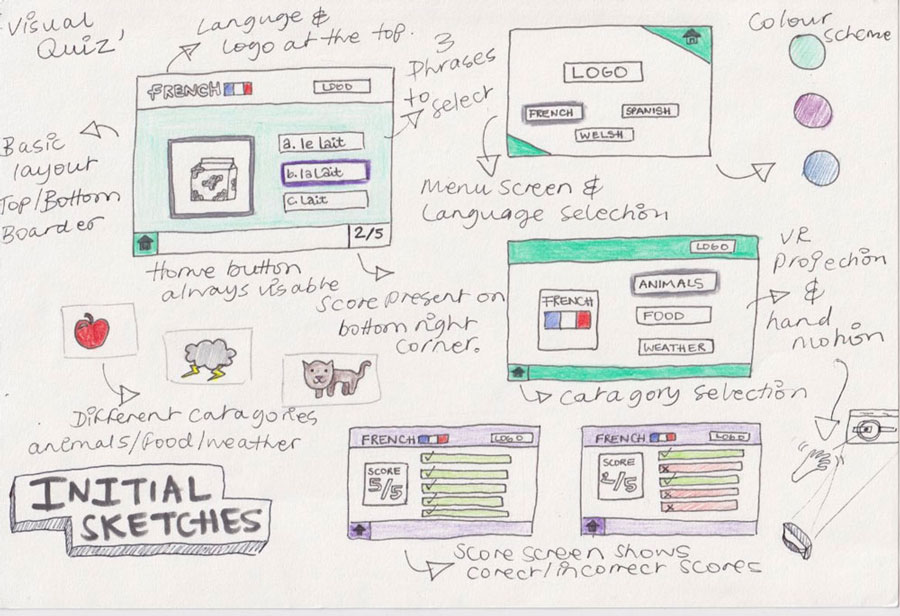 'Visual
Quiz'
Languge &
logo at the top.
FRENCH
LOGO
a. le lait
b. la Lait
c. Lait
2/5
3
Phrases
to
select
Basic
layout
Top/Bottom
Boarder
Home button
always visable
Score present on
bottom right
corner.
LOGO
FRENCH
SPANISH
WELSH
Menu Screen &
Language Selection
Colour
scheme
LOGO
FRENCH
ANIMALS
FOOD
WEATHER
Catagory Selection
VR
Projection
&
hand
motion
Different catagories
animals/food/weather
INITIAL
SKETCHES
FRENCH
LOGO
SCORE
5/5
FRENCH
LOGO
SCORE
2/5
Score screen shows
corect/incorrect scores